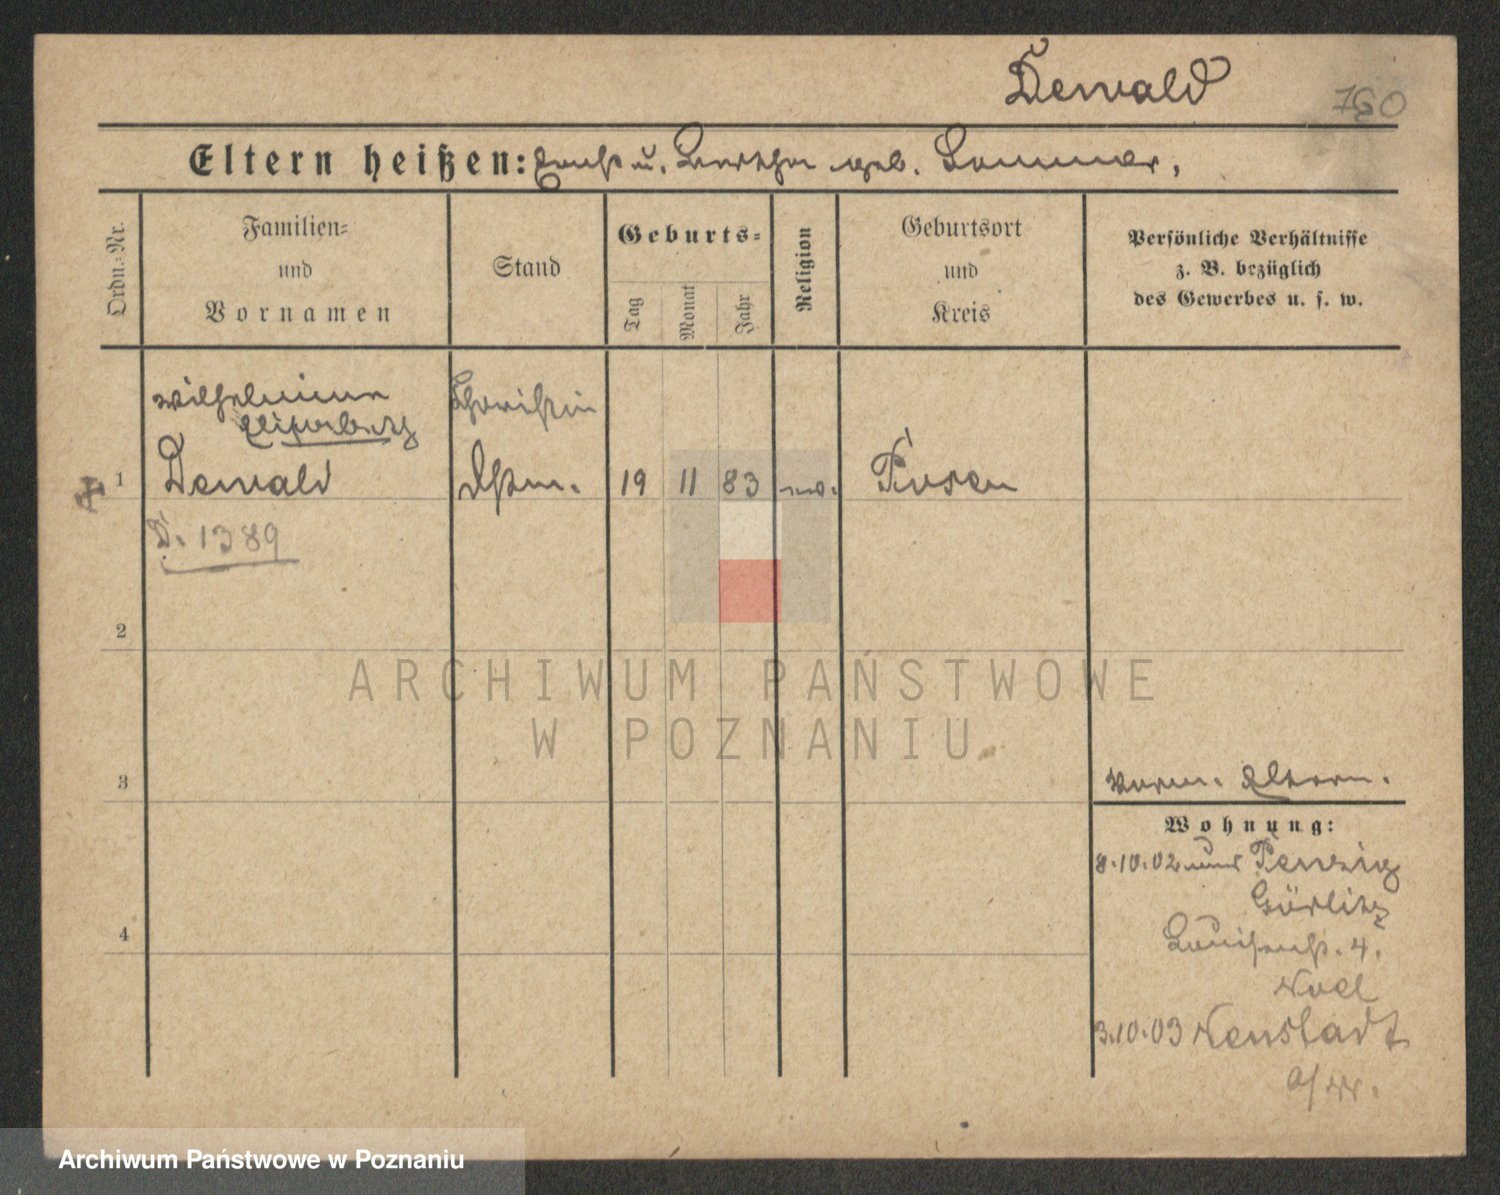 Dewald 760
Eltern heißen: Ernst u. Bertha geb. Sommer,
Ordn.=Nr.
Familien=
und
Vornamen
Stand
Geburts=
Tag
Monat
Jahr
Religion
Geburtsort
und
Kreis
Persönliche Verhältnisse
z. B. bezüglich
des Gewerbes u. s. w.
Wilhelmine
Elisabeth
1 Dewald 19 11 83 Posen
D. 1389
2
ARCHIWUM PAŃSTWOWE
W POZNANIU
3
Eltern.
Wohnung:
8.10.02 Penzig
Görlitz
Louisenst. 4.
4
3.10.03 Neustadt
a/W.
Archiwum Państwowe w Poznaniu